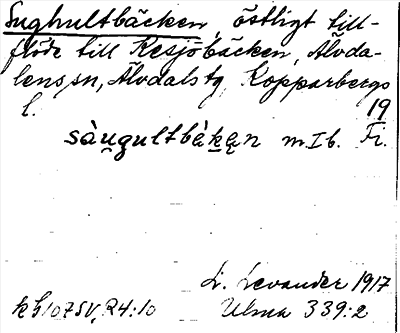 Sughultbäcken, östligt till-
flöde till Resjöbäcken, Älvda-
lens sn, Älvdals tg, Kopparbergs
l. 19
sàu̯gultbè̀kęn m. Ib. Fr.
L. Levander 1917
kh 107 SV, R4:10 Ulma 339:2